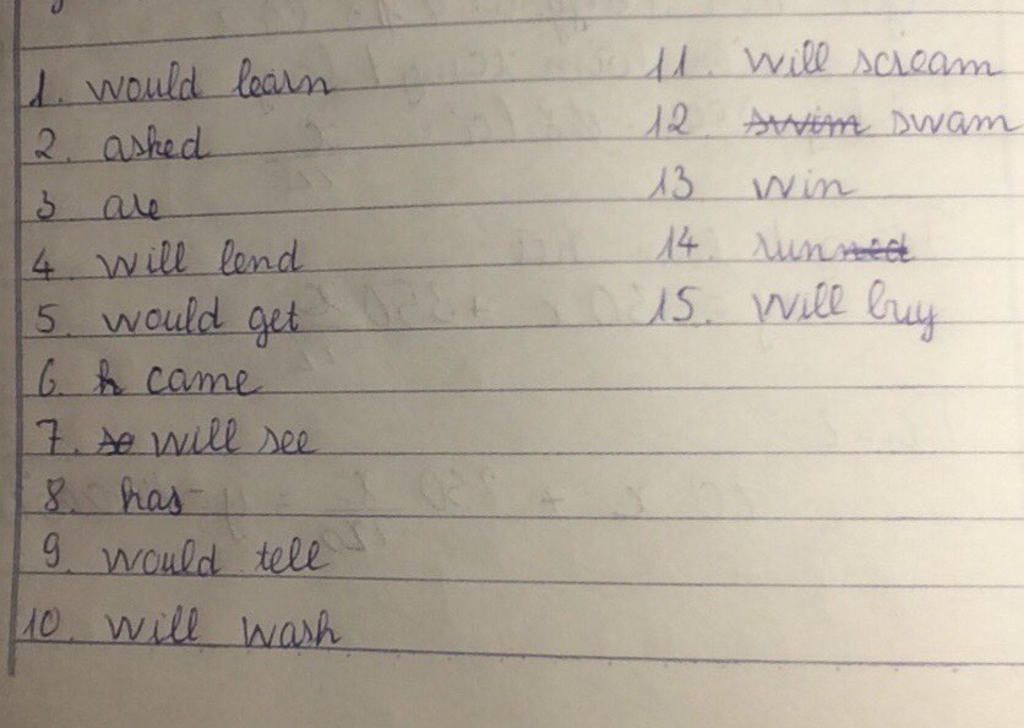 1. would learn
2. asked
3 are
4 will lend
5. would get
6. came
7. will see
8. has
9. would tell
10. will wash
11. will scream
12 swim swam
13 win
14. runned
15. will buy